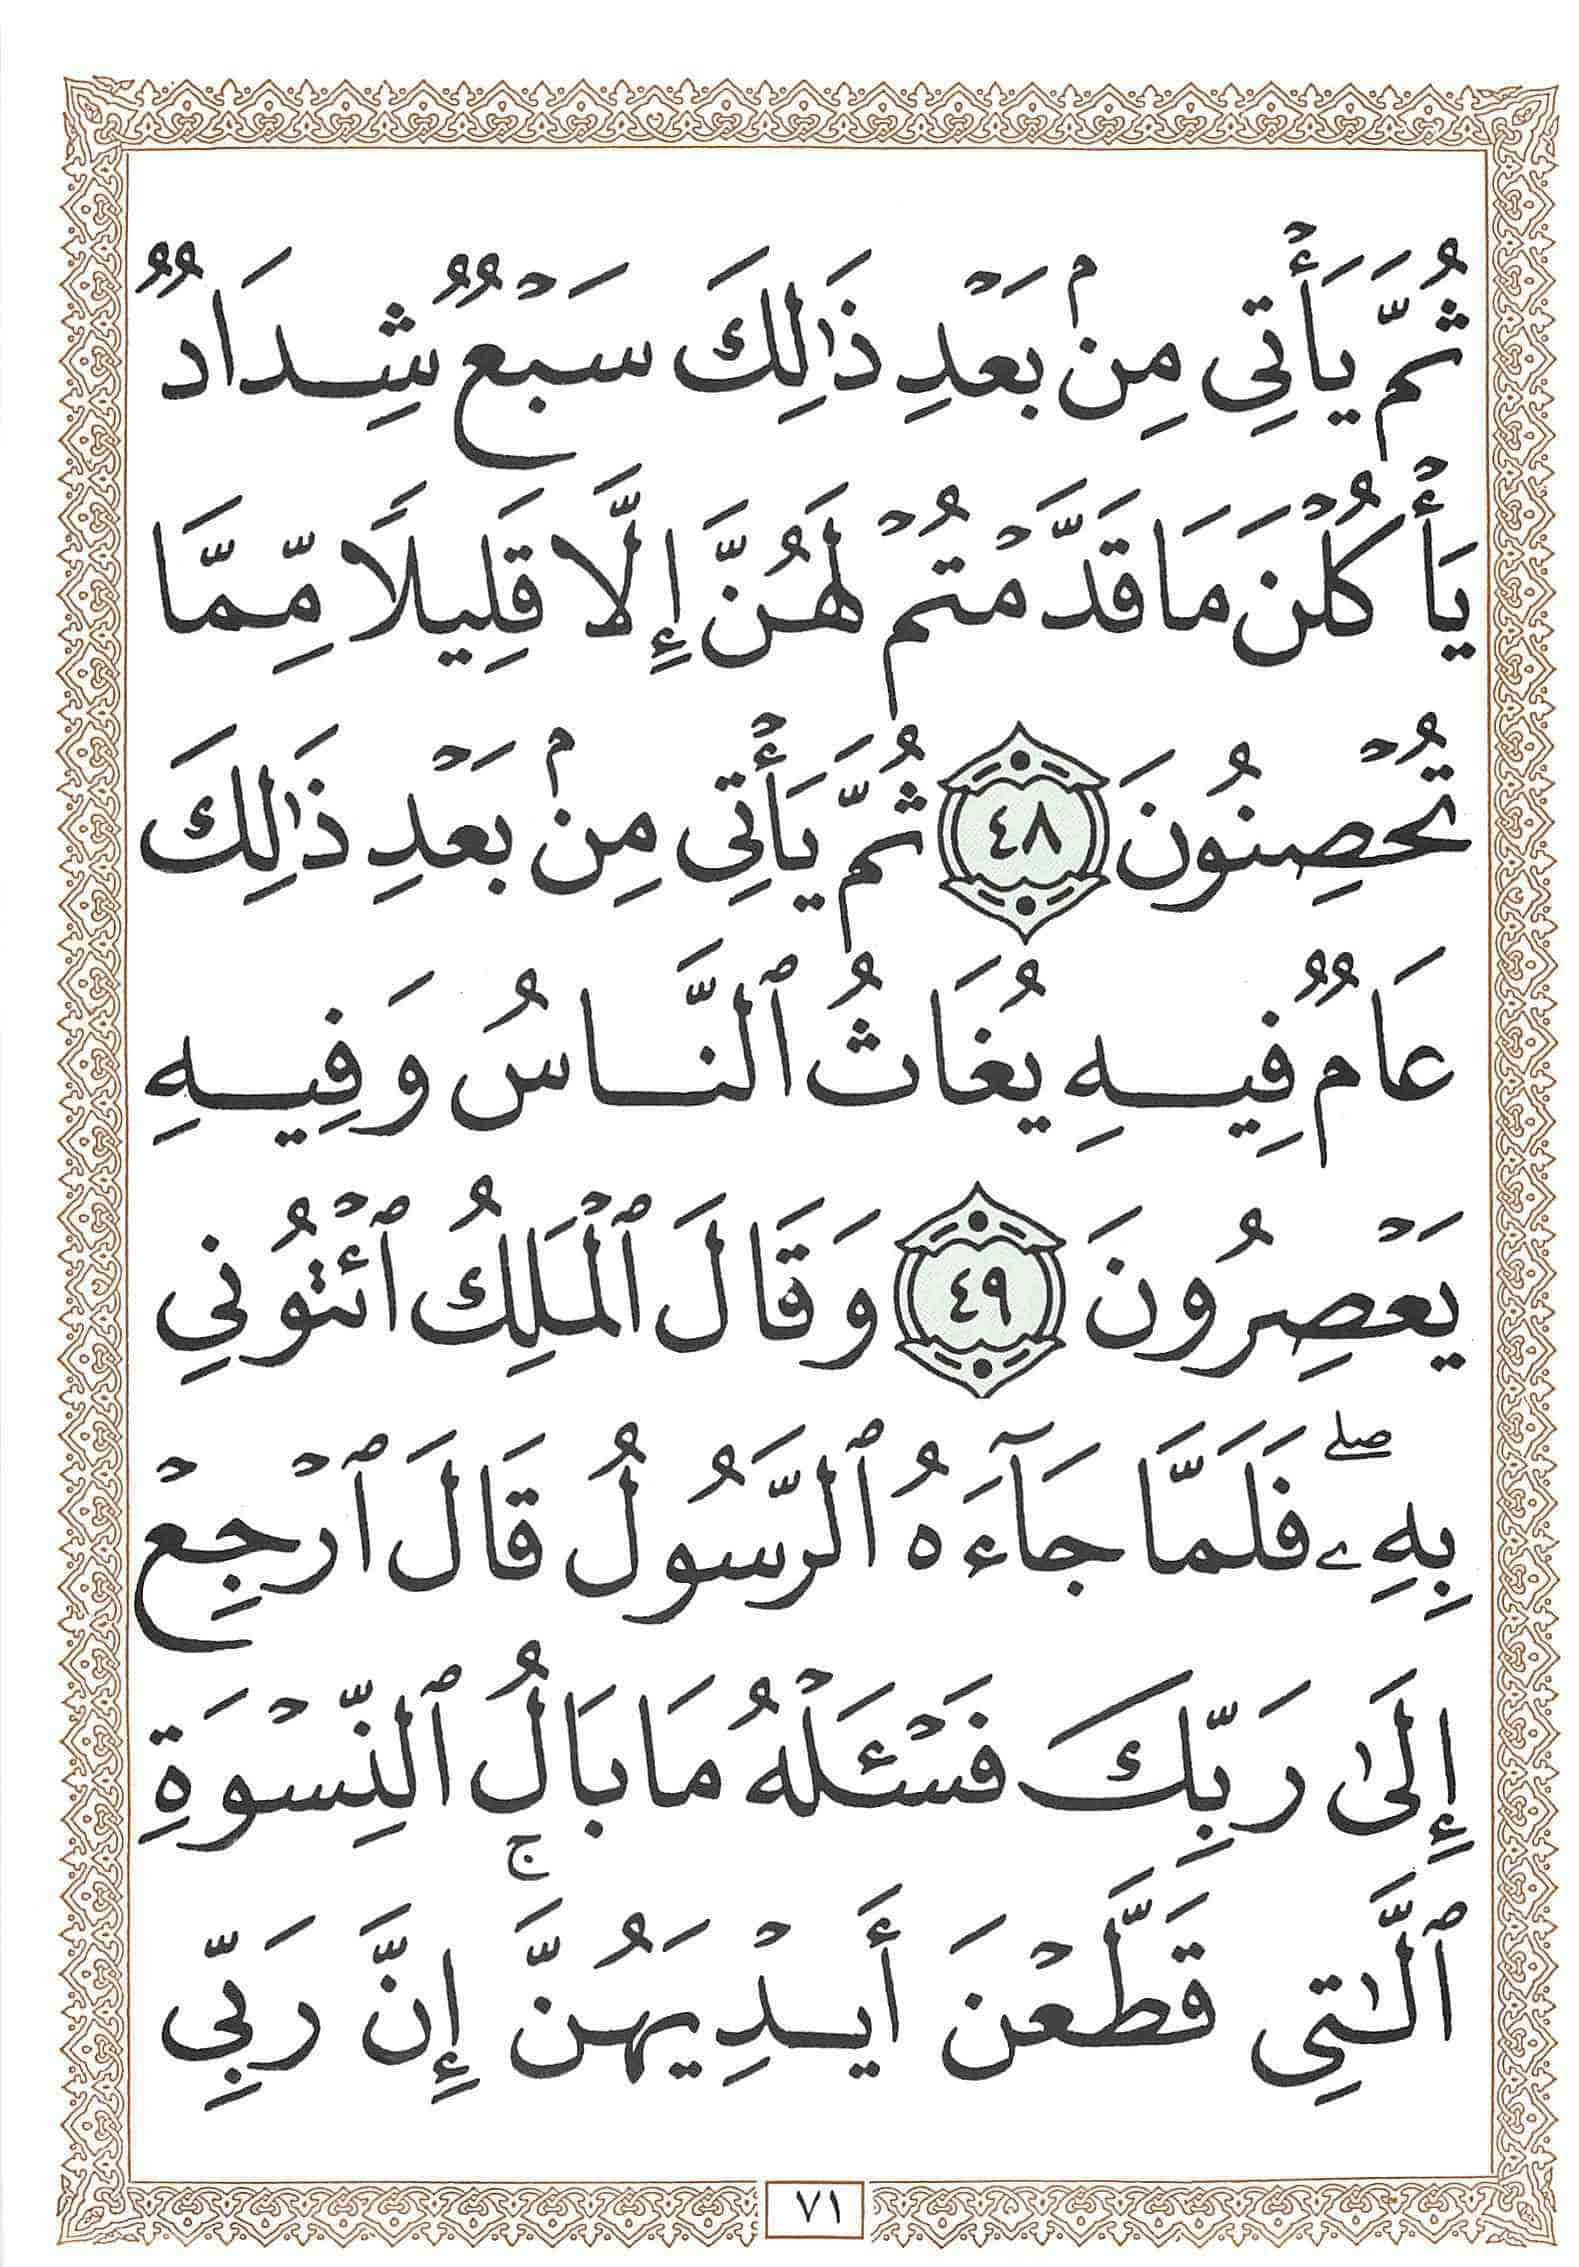 ثُمَّ يَأْتِى مِنۢ بَعْدِ ذَٰلِكَ سَبْعٌ شِدَادٌ
يَأْكُلْنَ مَا قَدَّمْتُمْ لَهُنَّ إِلَّا قَلِيلًا مِّمَّا
تُحْصِنُونَ ٤٨ ثُمَّ يَأْتِى مِنۢ بَعْدِ ذَٰلِكَ
عَامٌ فِيهِ يُغَاثُ ٱلنَّاسُ وَفِيهِ
يَعْصِرُونَ ٤٩ وَقَالَ ٱلْمَلِكُ ٱئْتُونِى
بِهِۦ ۖ فَلَمَّا جَآءَهُ ٱلرَّسُولُ قَالَ ٱرْجِعْ
إِلَىٰ رَبِّكَ فَسْـَٔلْهُ مَا بَالُ ٱلنِّسْوَةِ
ٱلَّـٰتِى قَطَّعْنَ أَيْدِيَهُنَّ ۚ إِنَّ رَبِّى
٧١